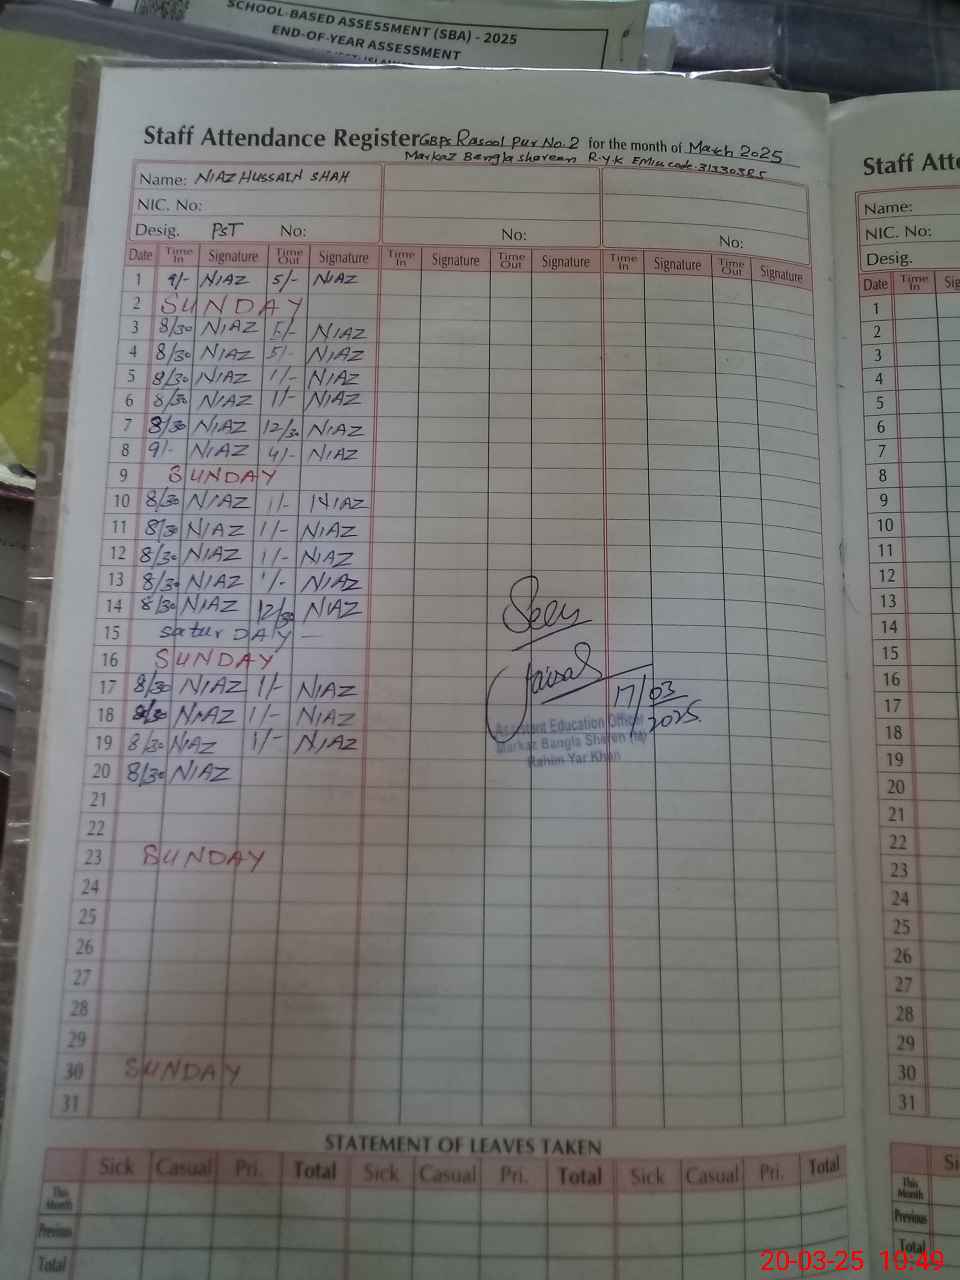 SCHOOL-BASED ASSESSMENT (SBA) - 2025
END-OF-YEAR ASSESSMENT
Staff Attendance Register GBPS Rasool Pur No. 2 for the month of March 2025
Markaz Bangla Shareen R.Y.K EMIS code. 31330385
Name: NIAZ HUSSAIN SHAH
NIC. No:
Desig. PST No: No: No:
Date Time In Signature Time Out Signature Time In Signature Time Out Signature Time In Signature Time Out Signature
1 9/- NIAZ 5/- NIAZ
2 SUNDAY
3 8/30 NIAZ 5/- NIAZ
4 8/30 NIAZ 5/- NIAZ
5 8/30 NIAZ 1/- NIAZ
6 8/30 NIAZ 1/- NIAZ
7 8/30 NIAZ 12/30 NIAZ
8 9/- NIAZ 4/- NIAZ
9 SUNDAY
10 8/30 NIAZ 1/- NIAZ
11 8/30 NIAZ 1/- NIAZ
12 8/30 NIAZ 1/- NIAZ
13 8/30 NIAZ 1/- NIAZ
14 8/30 NIAZ 12/30 NIAZ
15 saturDAY —
16 SUNDAY
17 8/30 NIAZ 1/- NIAZ
18 8/30 NIAZ 1/- NIAZ
19 8/30 NIAZ 1/- NIAZ
20 8/30 NIAZ
21
22
23 SUNDAY
24
25
26
27
28
29
30 SUNDAY
31
Seen
Faisal
17/03
2025
Assistant Education Officer
Markaz Bangla Sharen (M)
Rahim Yar Khan
STATEMENT OF LEAVES TAKEN
Sick Casual Pri. Total Sick Casual Pri. Total Sick Casual Pri. Total
This Month
Previous
Total
Staff Atte
Name:
NIC. No:
Desig.
Date Time In Sig
1
2
3
4
5
6
7
8
9
10
11
12
13
14
15
16
17
18
19
20
21
22
23
24
25
26
27
28
29
30
31
Si
This Month
Previous
Total
20-03-25 10:49